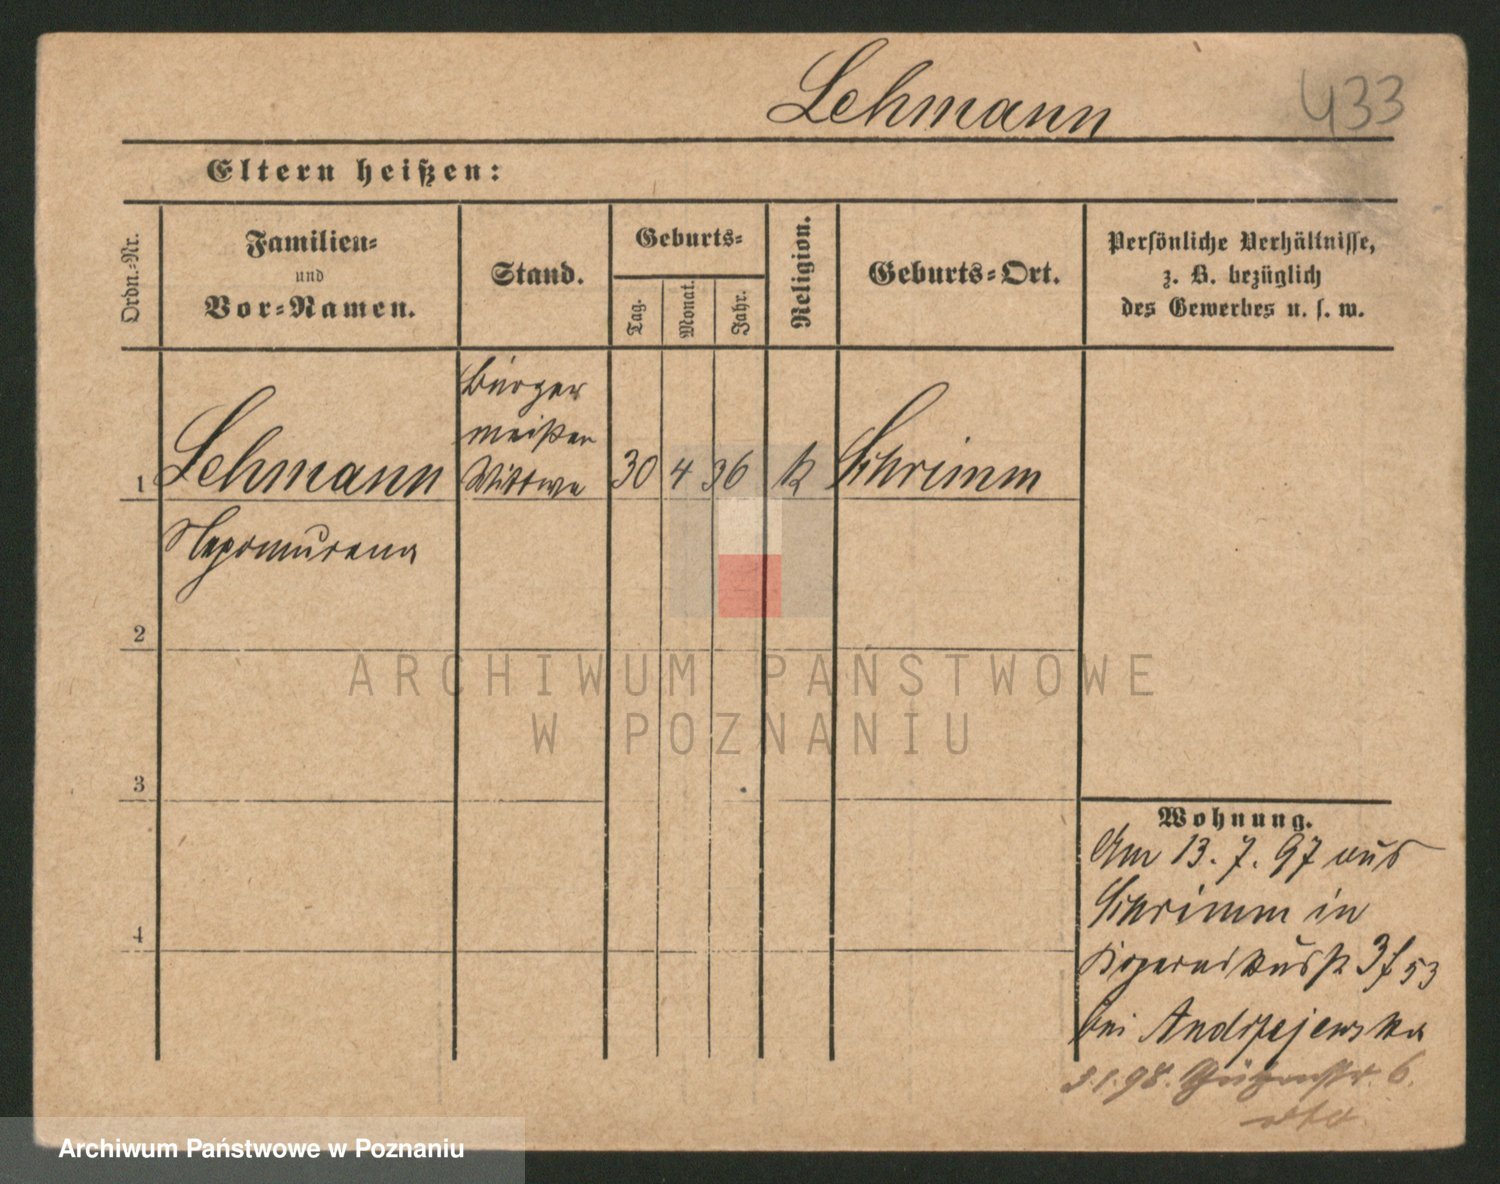 Lehmann 433
Eltern heißen:
Ordn.-Nr.
Familien-
und
Vor-Namen.
Stand.
Geburts-
Tag.
Monat.
Jahr.
Religion.
Geburts-Ort.
Persönliche Verhältnisse,
z. B. bezüglich
des Gewerbes u. s. w.
1
Lehmann
Nepomucena
Bürger
meister
Wittwe
30 4 36 k Schrimm
2
3
4
ARCHIWUM PAŃSTWOWE
W POZNANIU
Wohnung.
Am 13. 7. 97 aus
Schrimm in
53
bei Andrzejewska
3.1.98. Schützenstr. 6.
Archiwum Państwowe w Poznaniu